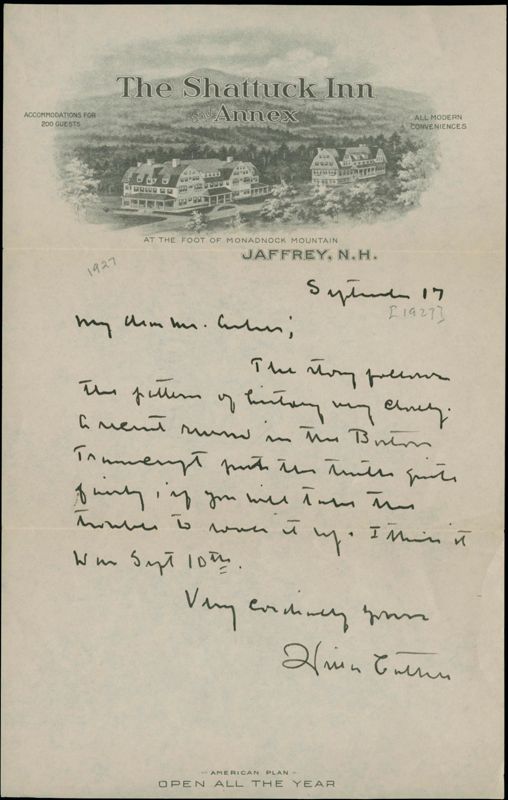 The Shattuck Inn
and Annex
ACCOMMODATIONS FOR
200 GUESTS
ALL MODERN
CONVENIENCES
AT THE FOOT OF MONADNOCK MOUNTAIN
JAFFREY, N.H.
1927
September 17
[1927]
My dear Mr.
The story follows
the pattern of history very closely.
A recent review in the Boston
Transcript puts the truth quite
fairly, if you will take the
trouble to look it up. I think it
was Sept 10th.
Very cordially yours
Willa Cather
- AMERICAN PLAN -
OPEN ALL THE YEAR